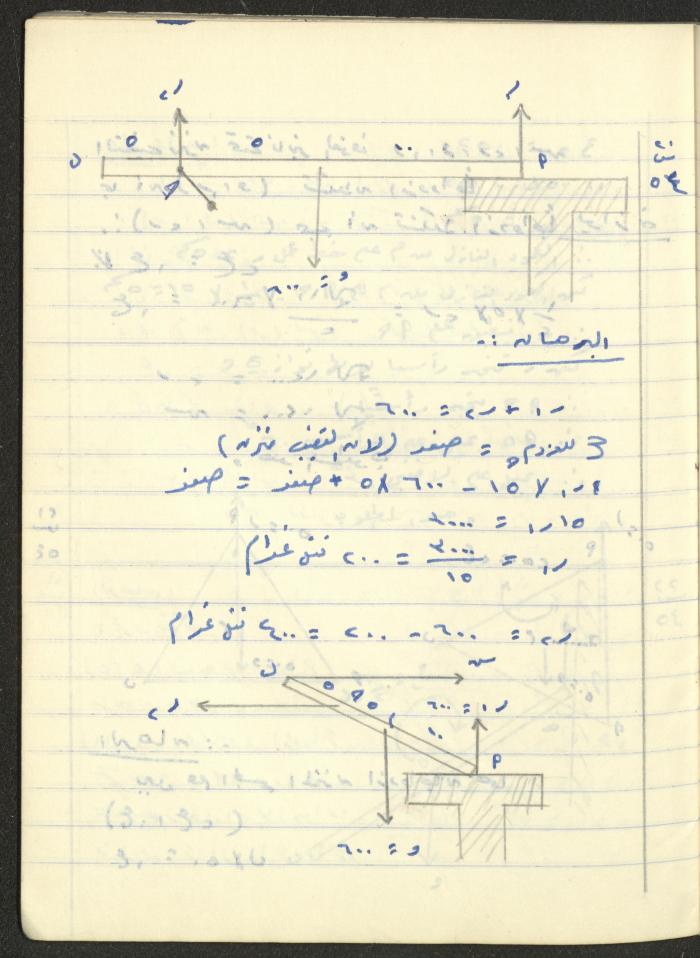 ر٢ ر١
ب ٥ ٥ ١٠ م
و = ٦٠٠
البرهان :.
ر١ + ر٢ = ٦٠٠
= صفر (لأن القضيب متزن)
ر١ × ١٥ - ٦٠٠ × ٥ + صفر = صفر
١٥ ر١ = ٣٠٠٠
ر١ = ٣٠٠٠ / ١٥ = ٢٠٠ ثقل غرام
ر٢ = ٦٠٠ - ٢٠٠ = ٤٠٠ ثقل غرام
ب س
ر٢ ٥ ٥ ١٠ ر١ = ٦٠٠
م
و = ٦٠٠